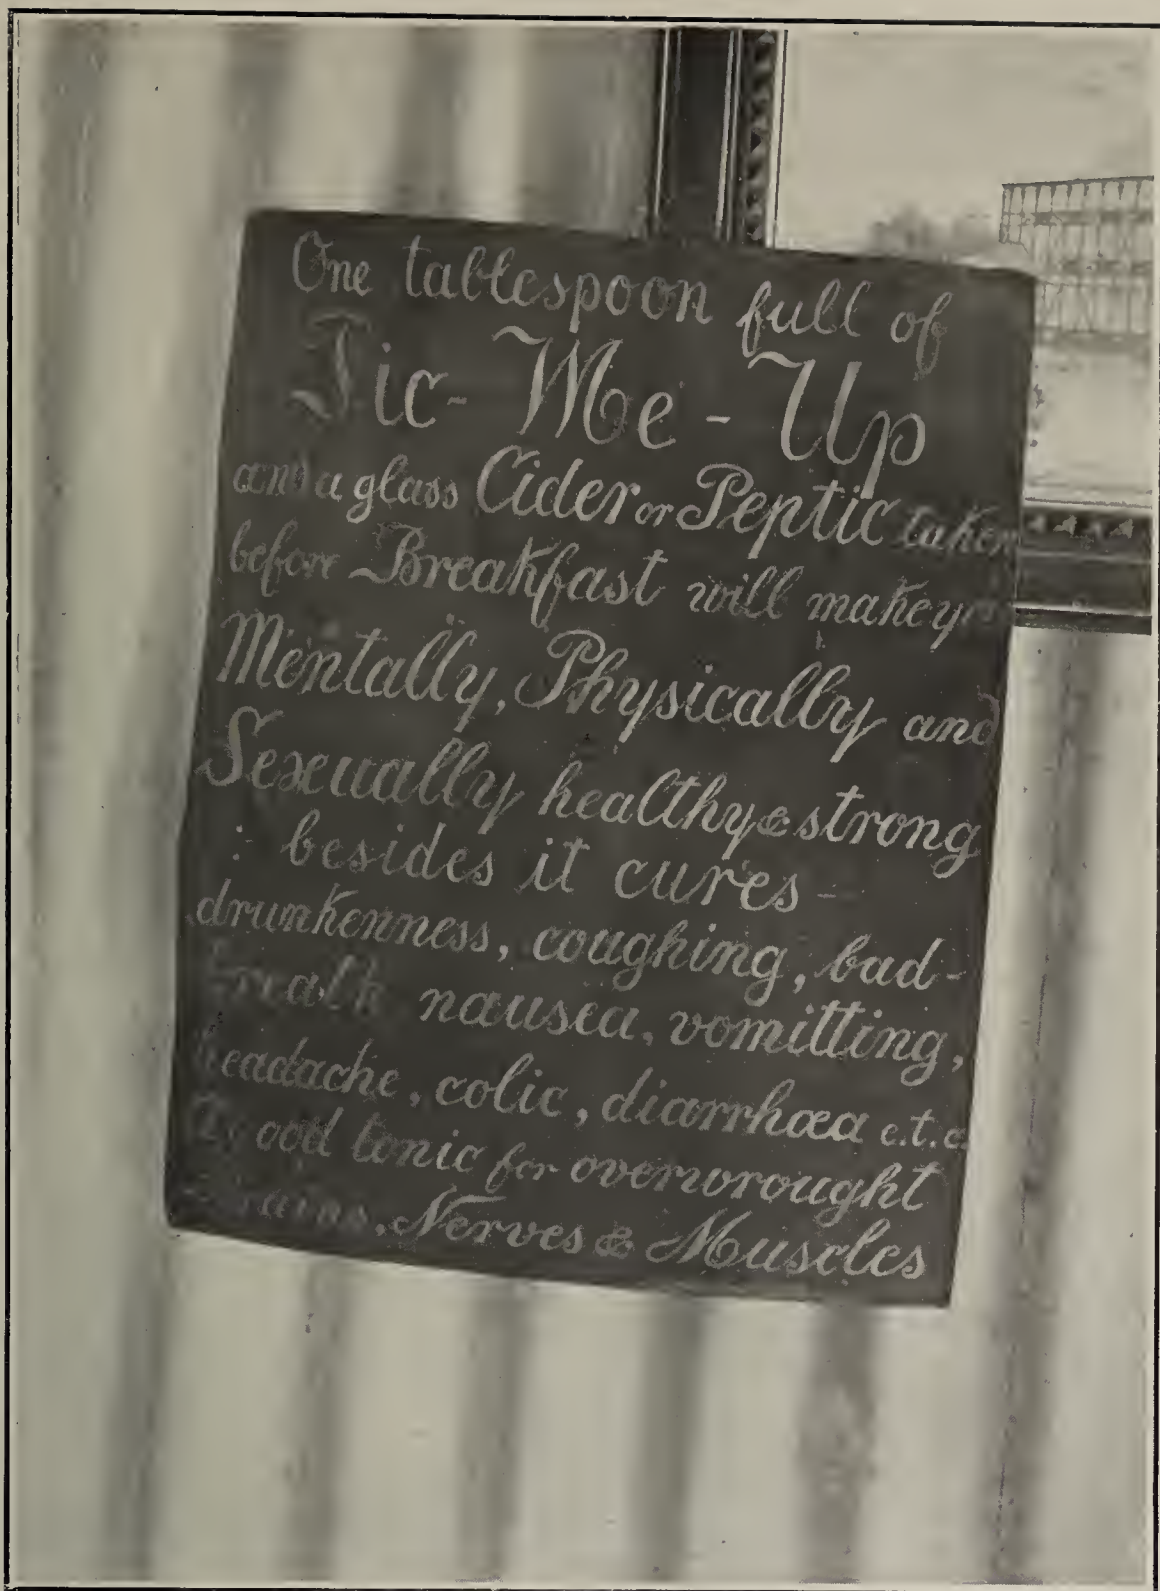 One tablespoon full of
Pic-Me-Up
and a glass Cider or Peptic taken
before Breakfast will make you
Mentally, Physically and
Sexually healthy & strong
: besides it cures -
drunkenness, coughing, bad-
breath nausea, vomitting,
headache, colic, diarrhœa e.t.c.
Good tonic for overwrought
Brains, Nerves & Muscles